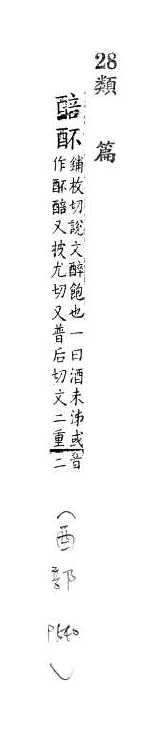 28類篇
醅䤃
鋪枚切說文醉飽也一曰酒未沛或
作䤃醅又披尤切又普后切文二重
音二
(酉部 P540)